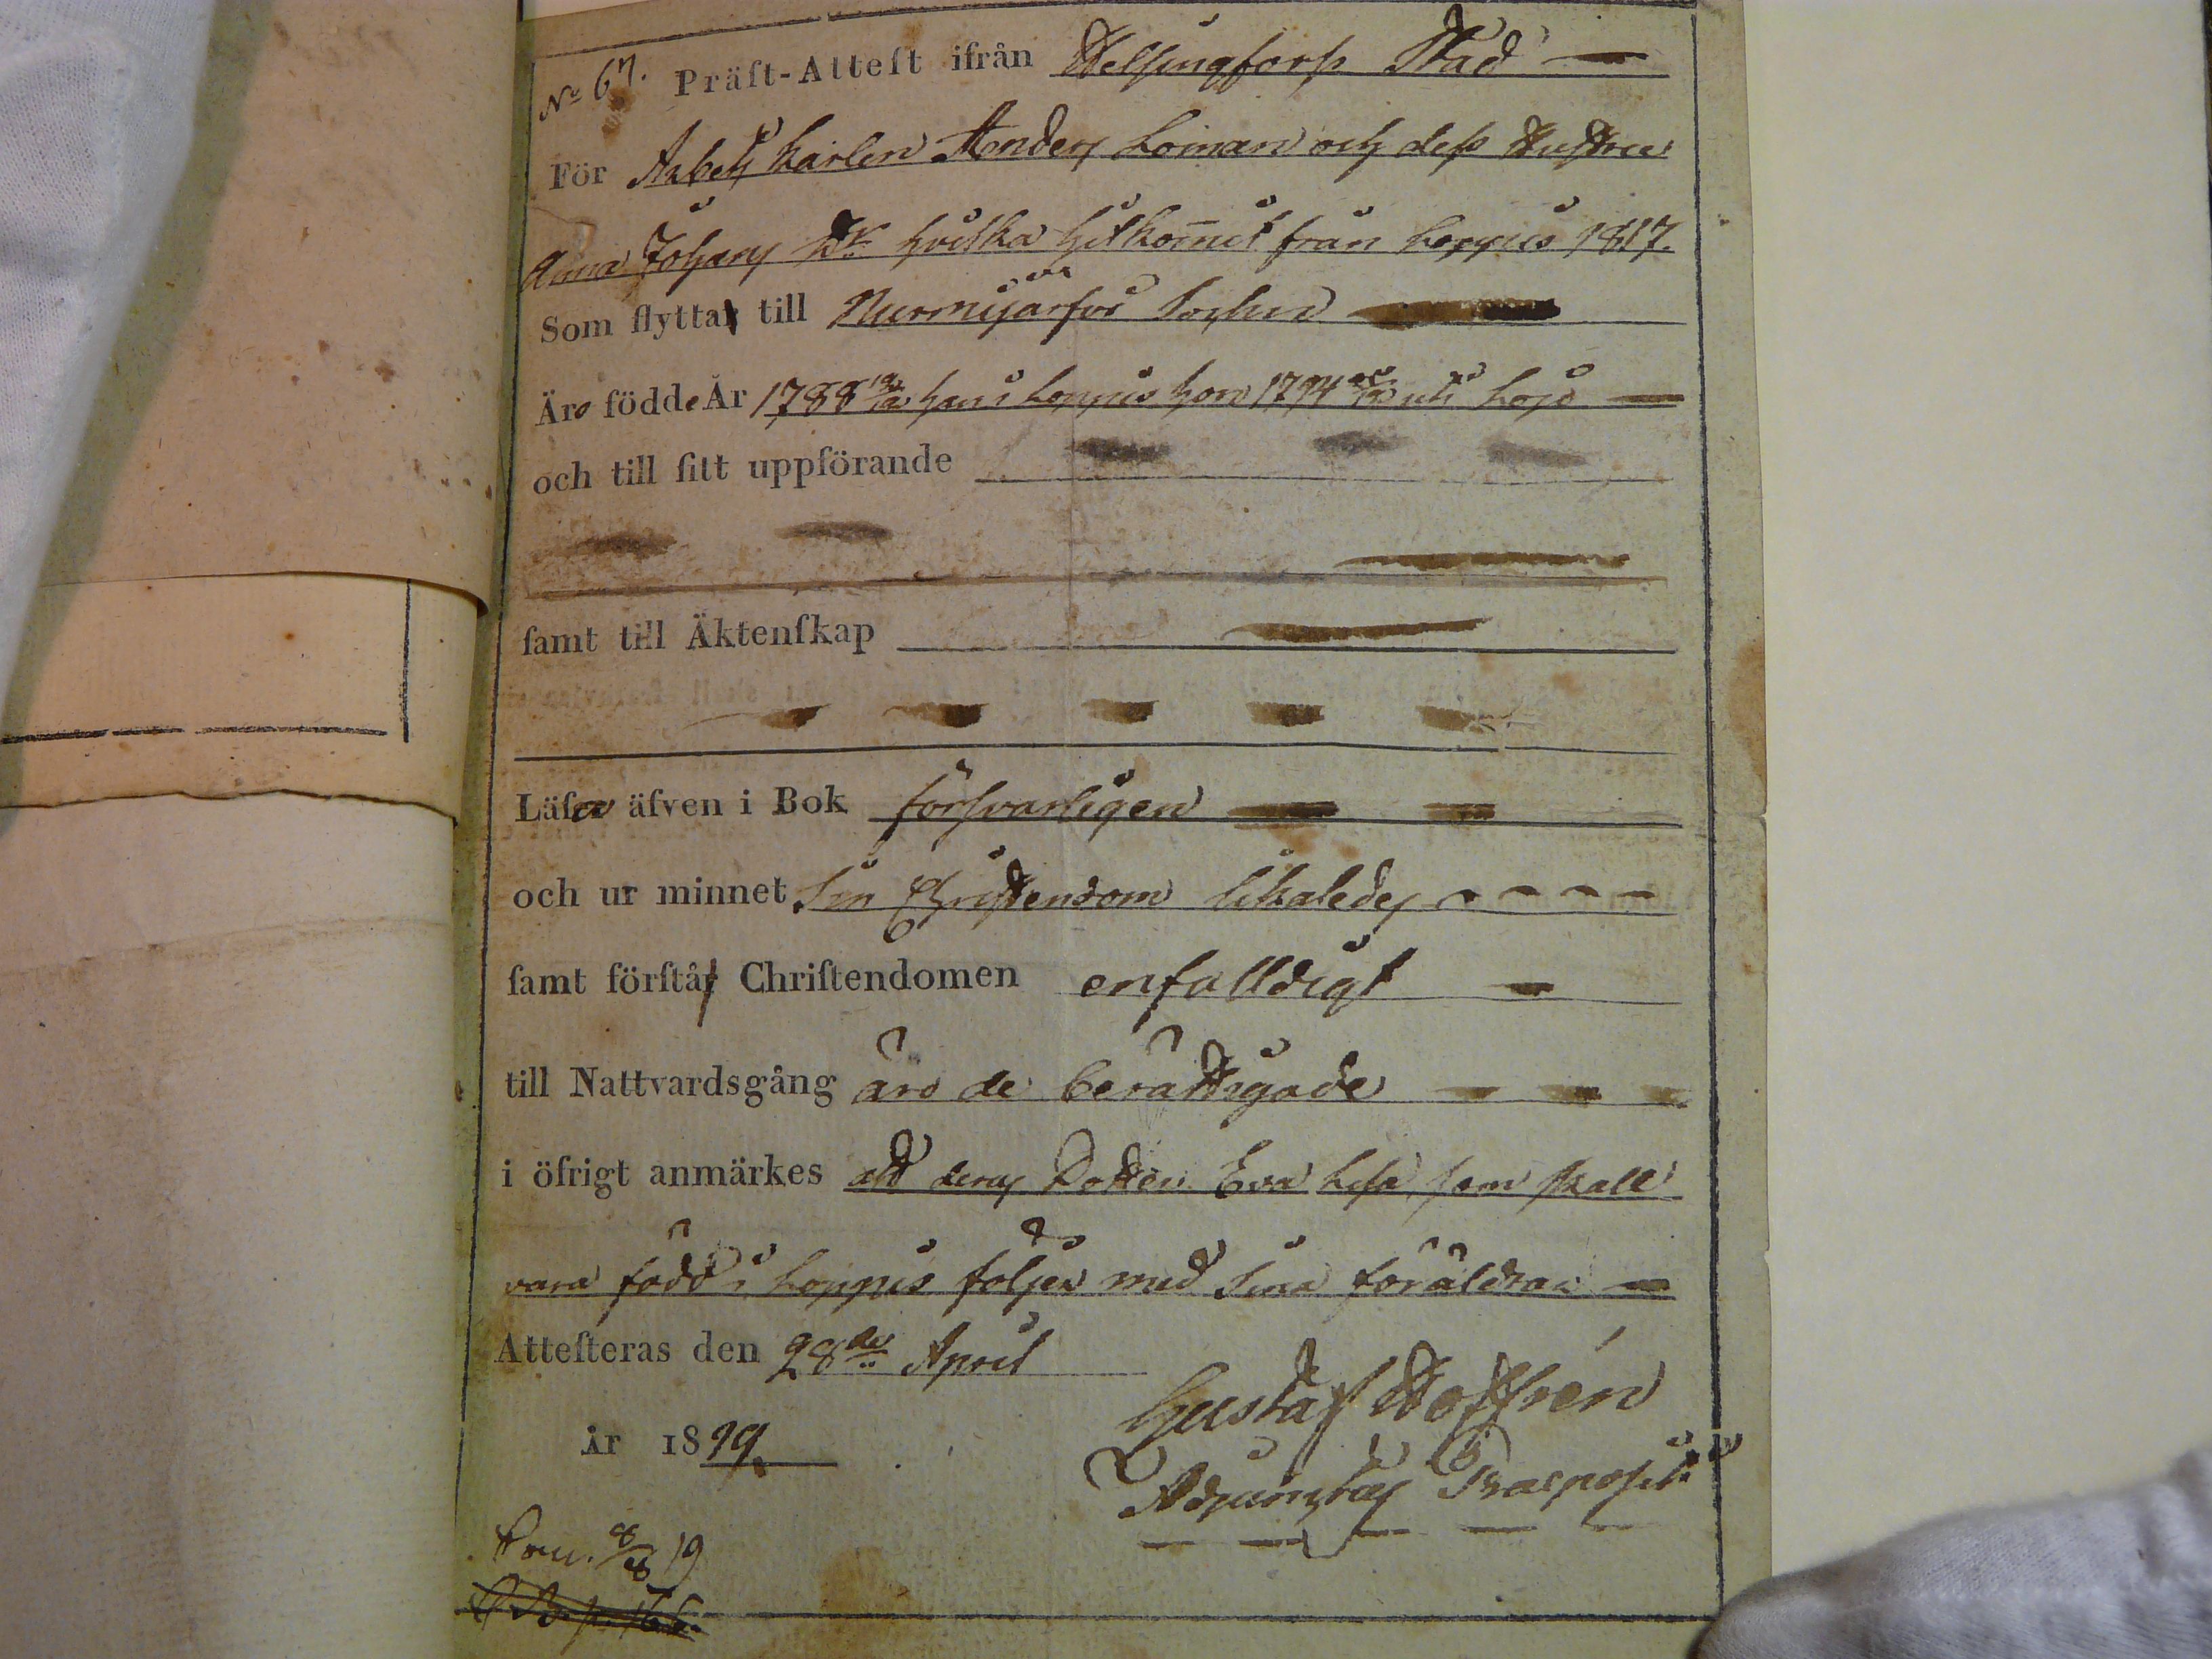 No 67. Präſt-Atteſt ifrån Helsingfors Stad
För Arbets Karlen Anders Loman och dess Hustru
Anna Johans Dr hvilka hitkom̄it från Loppis 1817.
Som flytta till Nurmijärfvi Sochn
Äro födde År 1788 han i Loppis hon 1794 uti Lojo
och till ſitt uppförande
ſamt till Äktenſkap
Läſa äfven i Bok försvarligen
och ur minnet Sin Christendom likaledes
ſamt förſtå Chriſtendomen enfaldigt
till Nattvardsgång äro de berättigade
i öfrigt anmärkes att deras Dotter Eva Lisa som skall
vara född i Loppis följer med Sina föräldrar
Atteſteras den 28de April
År 1819.
Gustaf
Adjunctus Praeposit:
8/8 19